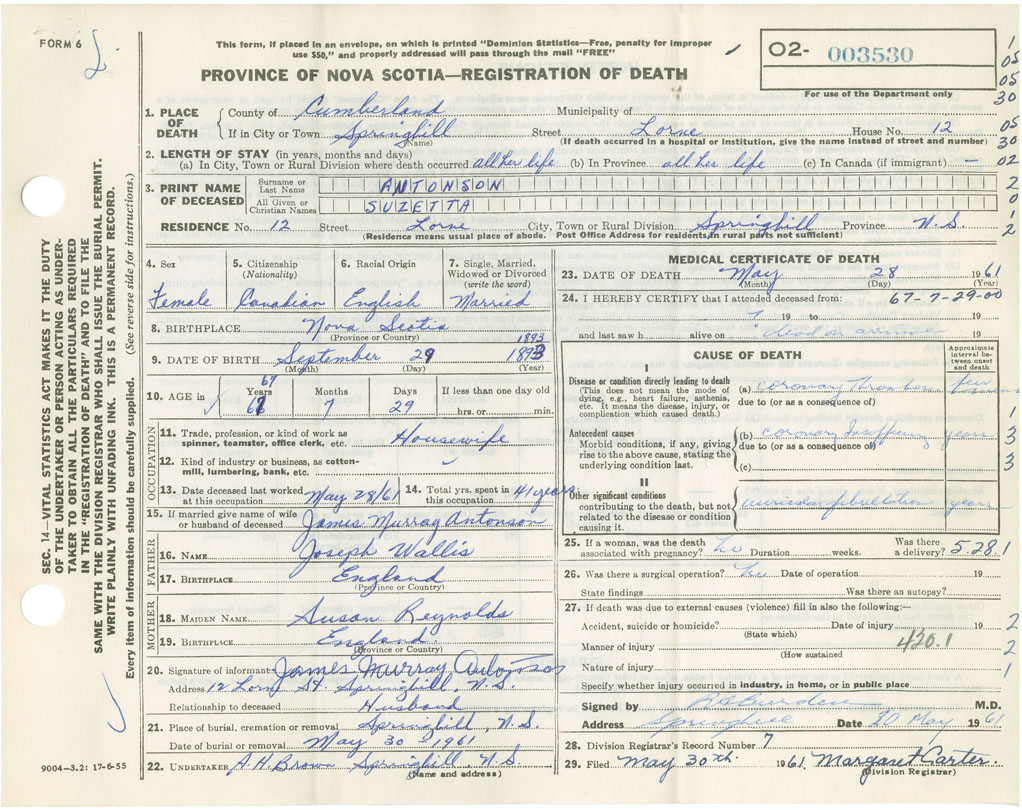 FORM 6
This form, if placed in an envelope, on which is printed "Dominion Statistics—Free, penalty for improper
use $50," and properly addressed will pass through the mail "FREE"
O2- 003530
For use of the Department only
PROVINCE OF NOVA SCOTIA—REGISTRATION OF DEATH
1. PLACE OF DEATH { County of Cumberland Municipality of
If in City or Town Springhill Street Lorne House No. 12
(Name) (If death occurred in a hospital or institution, give the name instead of street and number)
2. LENGTH OF STAY (in years, months and days)
(a) In City, Town or Rural Division where death occurred all her life (b) In Province all her life (c) In Canada (if immigrant) —
3. PRINT NAME OF DECEASED { Surname or Last Name ANTONSON
All Given or Christian Names SUZETTA
RESIDENCE No. 12 Street Lorne City, Town or Rural Division Springhill Province N.S.
(Residence means usual place of abode. Post Office Address for residents in rural parts not sufficient)
4. Sex 5. Citizenship (Nationality) 6. Racial Origin 7. Single, Married, Widowed or Divorced (write the word)
Female Canadian English Married
8. BIRTHPLACE Nova Scotia
(Province or Country) 1893
9. DATE OF BIRTH September 29 1893
(Month) (Day) (Year)
10. AGE in Years Months Days If less than one day old
67 7 29 hrs. or min.
OCCUPATION
11. Trade, profession, or kind of work as spinner, teamster, office clerk, etc. Housewife
12. Kind of industry or business, as cotton-mill, lumbering, bank, etc.
13. Date deceased last worked at this occupation May 28/61 14. Total yrs. spent in this occupation 41 years
15. If married give name of wife or husband of deceased James Murray Antonson
FATHER
16. NAME Joseph Wallis
17. BIRTHPLACE England
(Province or Country)
MOTHER
18. MAIDEN NAME Susan Reynolds
19. BIRTHPLACE England
(Province or Country)
20. Signature of informant James Murray Antonson
Address 12 Lorn St. Springhill, N.S.
Relationship to deceased Husband
21. Place of burial, cremation or removal Springhill, N.S.
Date of burial or removal May 30 1961
22. UNDERTAKER A.H. Brown Springhill, N.S.
(Name and address)
MEDICAL CERTIFICATE OF DEATH
23. DATE OF DEATH May 28 1961
(Month) (Day) (Year)
24. I HEREBY CERTIFY that I attended deceased from: 67-7-29-00
19 to 19
and last saw h alive on dead on arrival 19
CAUSE OF DEATH
Approximate interval between onset and death
I
Disease or condition directly leading to death
(This does not mean the mode of dying, e.g., heart failure, asthenia, etc. It means the disease, injury, or complication which caused death.)
(a) coronary thrombosis few
due to (or as a consequence of)
Antecedent causes
Morbid conditions, if any, giving rise to the above cause, stating the underlying condition last.
(b) coronary years
due to (or as a consequence of)
(c)
II
Other significant conditions
contributing to the death, but not related to the disease or condition causing it.
auricular fibrillation years
25. If a woman, was the death associated with pregnancy? no Duration weeks. Was there a delivery? 5.28.1
26. Was there a surgical operation? no Date of operation 19
State findings Was there an autopsy?
27. If death was due to external causes (violence) fill in also the following:—
Accident, suicide or homicide? Date of injury 19
(State which)
Manner of injury 420.1
(How sustained)
Nature of injury
Specify whether injury occurred in industry, in home, or in public place
Signed by Burden M.D.
Address Springhill Date 20 May 1961
28. Division Registrar's Record Number 7
29. Filed May 30th. 1961. Margaret Carter
(Division Registrar)
SEC. 14—VITAL STATISTICS ACT MAKES IT THE DUTY
OF THE UNDERTAKER OR PERSON ACTING AS UNDER-
TAKER TO OBTAIN ALL THE PARTICULARS REQUIRED
IN THE "REGISTRATION OF DEATH" AND TO FILE THE
SAME WITH THE DIVISION REGISTRAR WHO SHALL ISSUE THE BURIAL PERMIT.
WRITE PLAINLY WITH UNFADING INK. THIS IS A PERMANENT RECORD.
Every item of information should be carefully supplied. (See reverse side for instructions.)
9004-3.2: 17-6-55
1
05
05
30
05
30
02
2
0
1
2
1
3
3
1
2
2
1